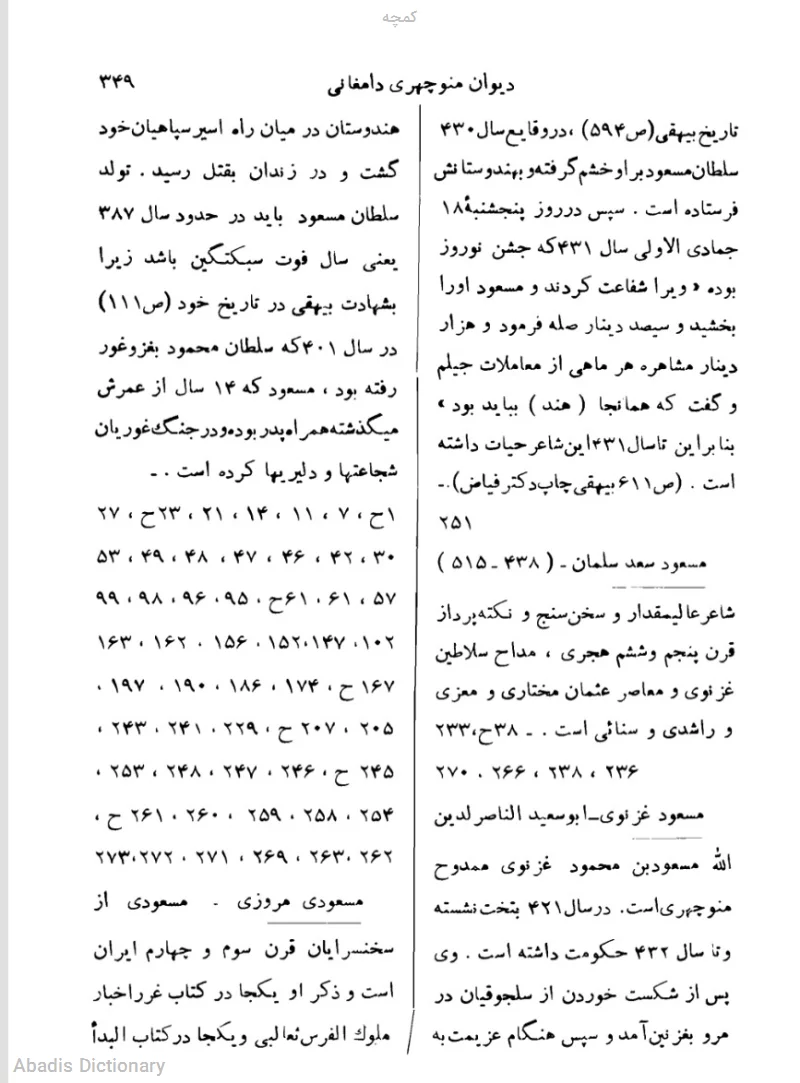 کمچه
دیوان منوچهری دامغانی
۳۴۹
تاریخ بیهقی(ص۵۹۴) ،دروقایع سال ۴۳۰
سلطان مسعود براوخشم گرفته و بهندوستانش
فرستاده است . سپس درروز پنجشنبهٔ ۱۸
جمادی الاولی سال ۴۳۱که جشن نوروز
بوده « ویرا شفاعت کردند و مسعود اورا
بخشید و سیصد دینار صله فرمود و هزار
دینار مشاهره هر ماهی از معاملات جیلم
و گفت که همانجا ( هند ) بباید بود »
بنابراین تاسال۴۳۱این شاعر حیات داشته
است . (ص۶۱۱ بیهقی چاپ دکتر فیاض).ـ
۲۵۱
مسعود سعد سلمان ـ ( ۴۳۸ ـ ۵۱۵ )
شاعر عالیمقدار و سخن سنج و نکته پرداز
قرن پنجم وششم هجری ، مداح سلاطین
غزنوی و معاصر عثمان مختاری و معزی
و راشدی و سنائی است . ـ ۳۸ح،۲۳۳
۲۳۶ ، ۲۳۸ ، ۲۶۶ . ۲۷۰
مسعود غزنوی_ابوسعید الناصرلدین
الله مسعودبن محمود غزنوی ممدوح
منوچهری است. درسال۴۲۱ بتخت نشسته
وتا سال ۴۳۲ حکومت داشته است . وی
پس از شکست خوردن از سلجوقیان در
مرو بغزنین آمد و سپس هنگام عزیمت به
هندوستان در میان راه اسیر سپاهیان خود
گشت و در زندان بقتل رسید . تولد
سلطان مسعود باید در حدود سال ۳۸۷
یعنی سال فوت سبکتگین باشد زیرا
بشهادت بیهقی در تاریخ خود (ص۱۱۱)
در سال ۴۰۱که سلطان محمود بغزوغور
رفته بود ، مسعود که ۱۴ سال از عمرش
میگذشته همراه پدر بوده و درجنگ غوریان
شجاعتها و دلیریها کرده است . ـ
۱ح ، ۷ ، ۱۱ ، ۱۴ ، ۲۱ ، ۲۳ح ، ۲۷
۳۰ ، ۴۲ ، ۴۶ ، ۴۷ ، ۴۸ ، ۴۹ ، ۵۳
۵۷ ، ۶۱ ، ۶۱ح ، ۹۵ ، ۹۶ ، ۹۸ ، ۹۹
۱۰۲ ، ۱۴۷ ،۱۵۲ ، ۱۵۶ . ۱۶۲ ، ۱۶۳
۱۶۷ ح ، ۱۷۴ ، ۱۸۶ ، ۱۹۰ ، ۱۹۷ ،
۲۰۵ ، ۲۰۷ ح ، ۲۲۹ ، ۲۴۱ ، ۲۴۳ ،
۲۴۵ ح ، ۲۴۶ ، ۲۴۷ ، ۲۴۸ ، ۲۵۳ ،
۲۵۴ ، ۲۵۸ ، ۲۵۹ ، ۲۶۰ ، ۲۶۱ ح ،
۲۶۲ ، ۲۶۳ ، ۲۶۹ ، ۲۷۱ ، ۲۷۲ ،۲۷۳
مسعودی مروزی . مسعودی از
سخنسرایان قرن سوم و چهارم ایران
است و ذکر او یکجا در کتاب غرراخبار
ملوك الفرس ثعالبی ویکجا درکتاب البدأ
Abadis Dictionary